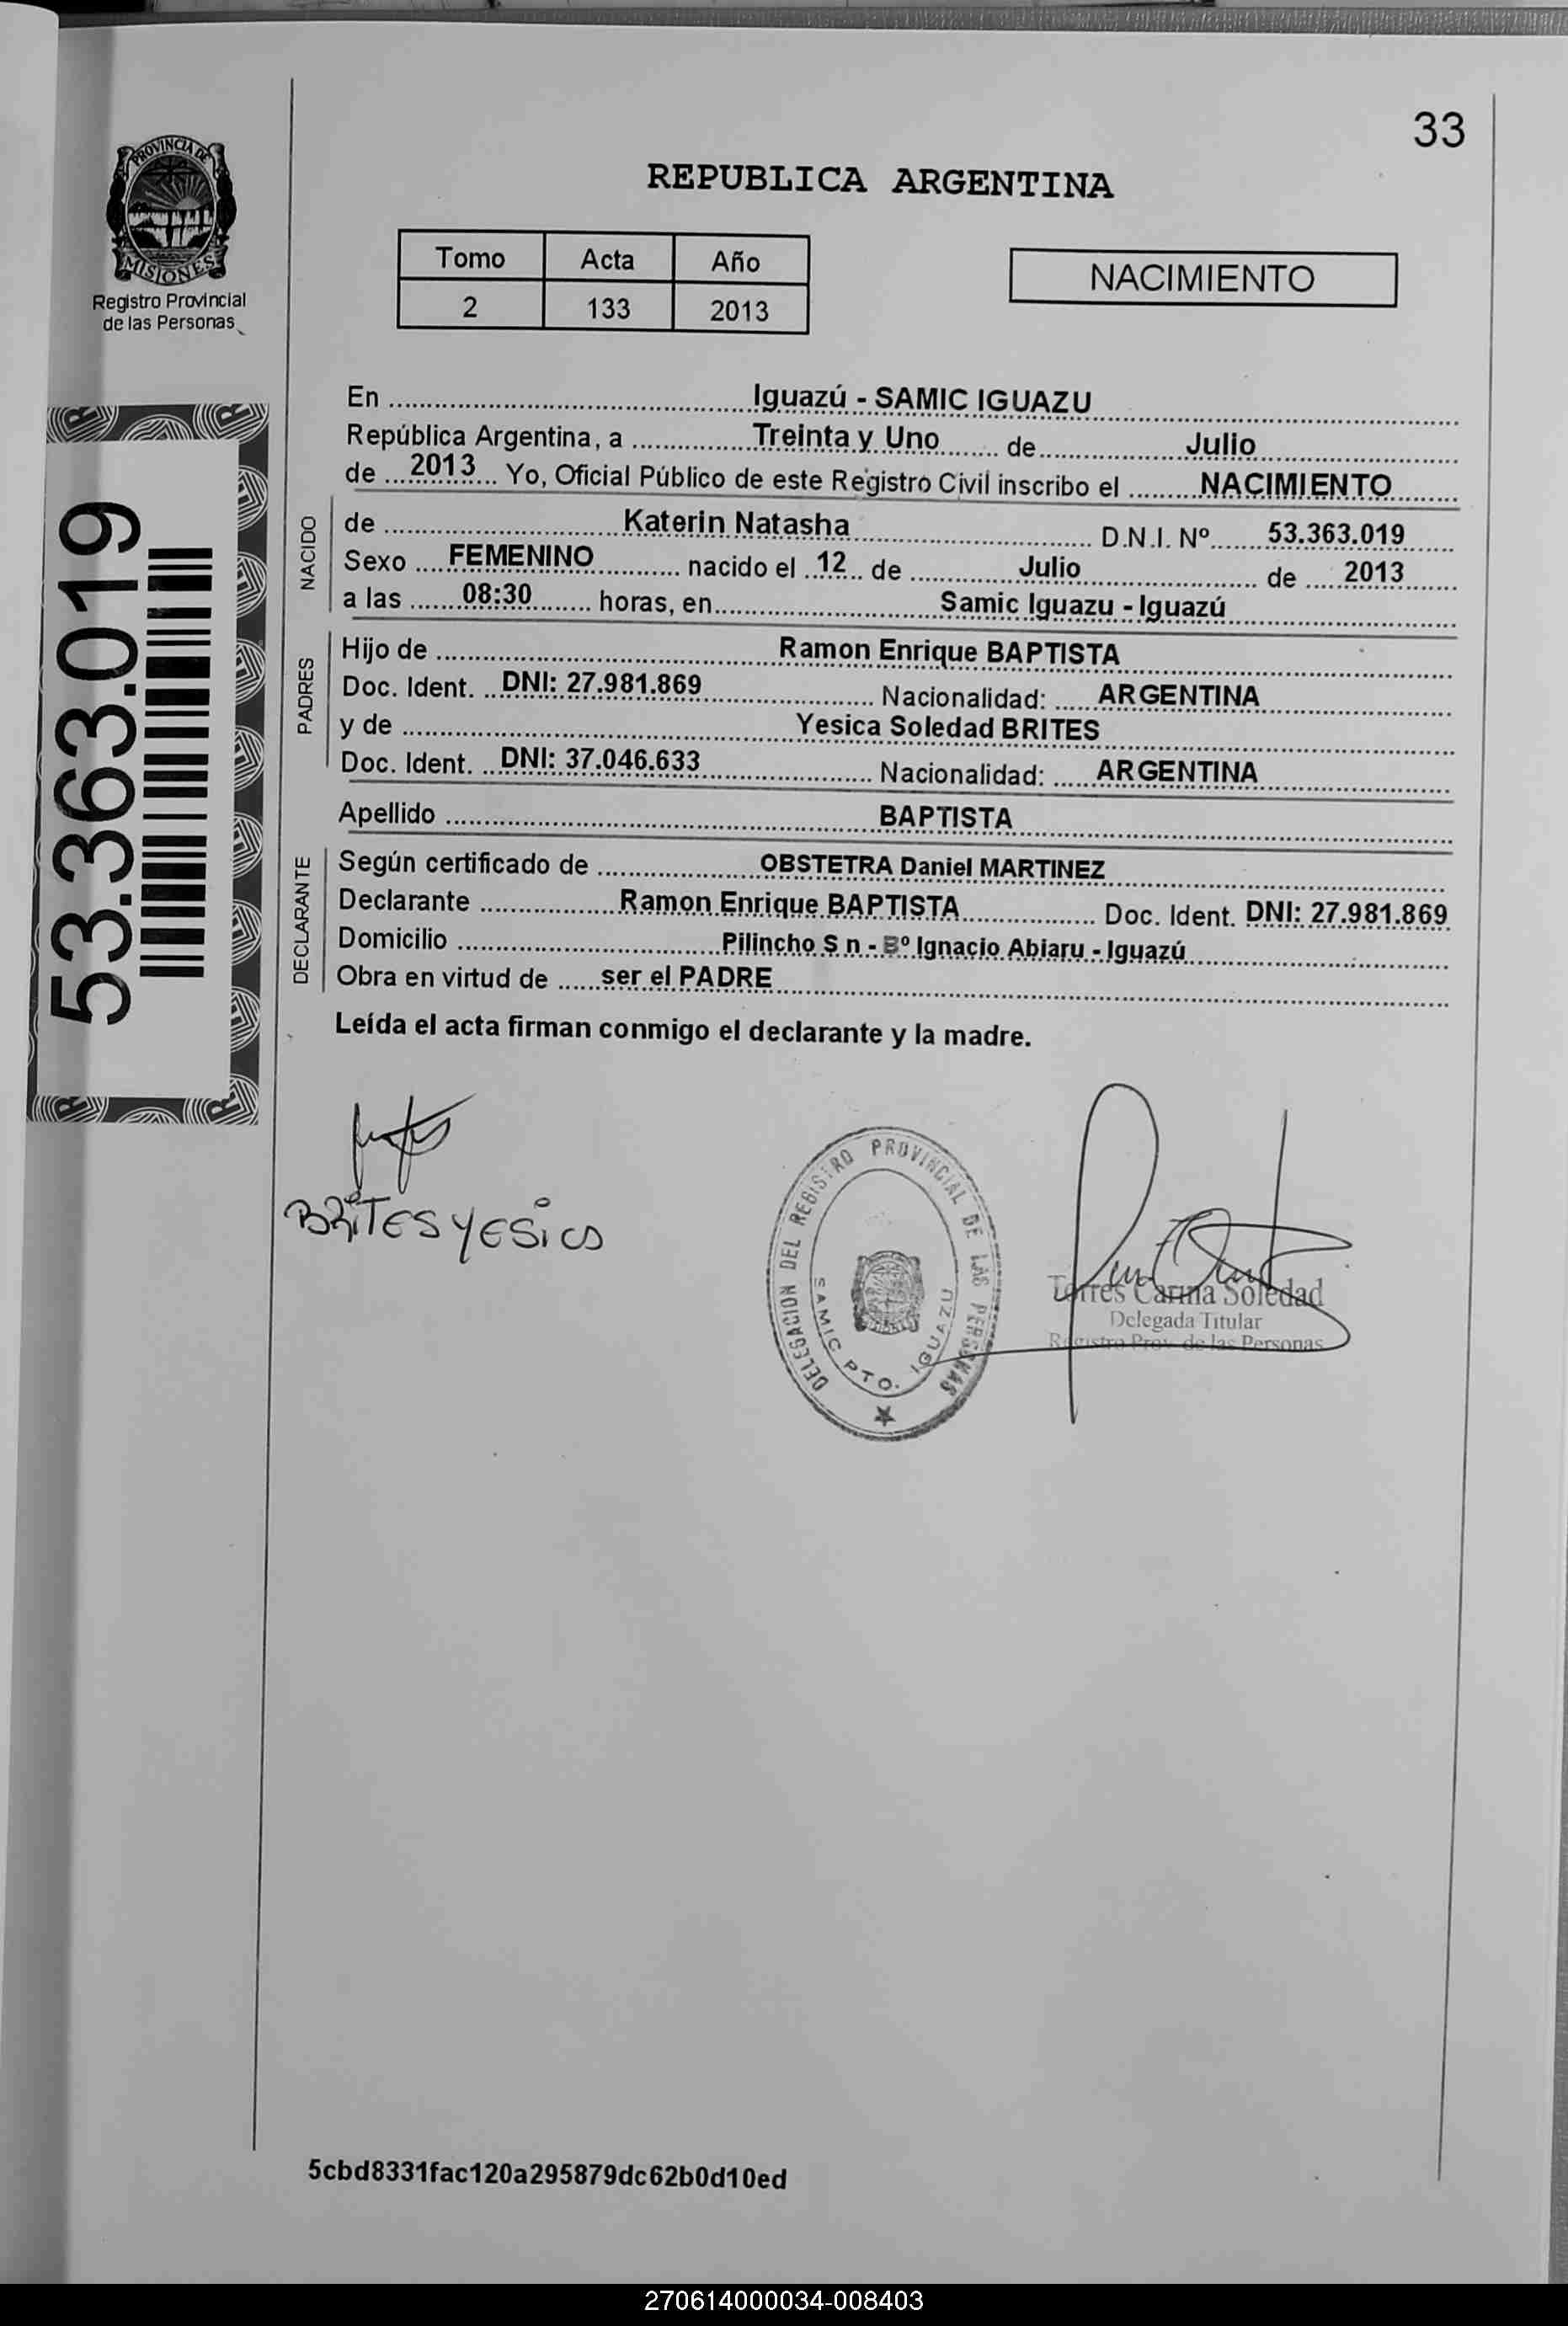 33
PROVINCIA DE
MISIONES
Registro Provincial
de las Personas
REPUBLICA ARGENTINA
Tomo Acta Año
2 133 2013
NACIMIENTO
53.363.019
En Iguazú - SAMIC IGUAZU
República Argentina, a Treinta y Uno de Julio
de 2013 Yo, Oficial Público de este Registro Civil inscribo el NACIMIENTO
NACIDO
de Katerin Natasha D.N.I. Nº 53.363.019
Sexo FEMENINO nacido el 12 de Julio de 2013
a las 08:30 horas, en Samic Iguazu - Iguazú
PADRES
Hijo de Ramon Enrique BAPTISTA
Doc. Ident. DNI: 27.981.869 Nacionalidad: ARGENTINA
y de Yesica Soledad BRITES
Doc. Ident. DNI: 37.046.633 Nacionalidad: ARGENTINA
Apellido BAPTISTA
DECLARANTE
Según certificado de OBSTETRA Daniel MARTINEZ
Declarante Ramon Enrique BAPTISTA Doc. Ident. DNI: 27.981.869
Domicilio Pilincho S n - Bº Ignacio Abiaru - Iguazú
Obra en virtud de ser el PADRE
Leída el acta firman conmigo el declarante y la madre.
BRITES YESICA
DELEGACION DEL REGISTRO PROVINCIAL DE LAS PERSONAS
SAMIC PTO. IGUAZU
Torres Carina Soledad
Delegada Titular
Registro Prov. de las Personas
5cbd8331fac120a295879dc62b0d10ed
270614000034-008403